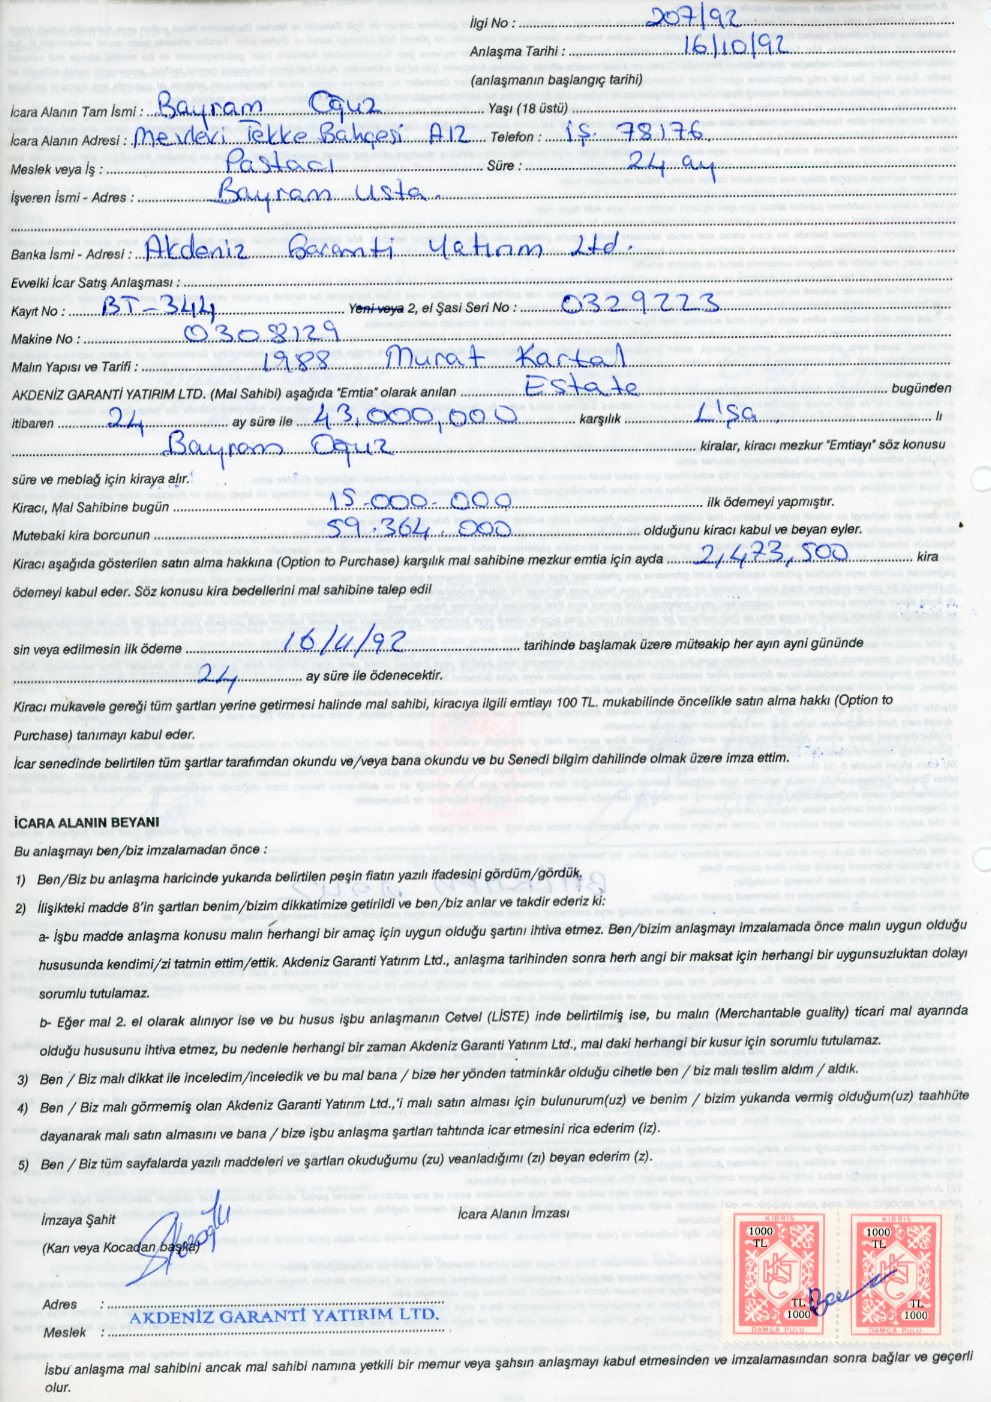 İlgi No : 207/92
Anlaşma Tarihi : 16/10/92
(anlaşmanın başlangıç tarihi)
İcara Alanın Tam İsmi : Bayram Oğuz Yaşı (18 üstü)
İcara Alanın Adresi : Mevlevi Tekke Bahçesi A12 Telefon : iş. 78176
Meslek veya İş : Pastacı Süre : 24 ay
İşveren İsmi - Adres : Bayram Usta.
Banka İsmi - Adresi : Akdeniz Garanti Yatırım Ltd.
Evvelki İcar Satış Anlaşması :
Kayıt No : BT-344 Yeni veya 2, el Şasi Seri No : 0329223
Makine No : 0308129
Malın Yapısı ve Tarifi : 1988 Murat Kartal
AKDENİZ GARANTİ YATIRIM LTD. (Mal Sahibi) aşağıda "Emtia" olarak anılan Estate bugünden
itibaren 24 ay süre ile 43,000,000 karşılık L'şa lı
Bayram Oğuz kiralar, kiracı mezkur "Emtiayı" söz konusu
süre ve meblağ için kiraya alır.
Kiracı, Mal Sahibine bugün 15.000.000 ilk ödemeyi yapmıştır.
Mutebaki kira borcunun 59.364.000 olduğunu kiracı kabul ve beyan eyler.
Kiracı aşağıda gösterilen satın alma hakkına (Option to Purchase) karşılık mal sahibine mezkur emtia için ayda 2,473,500 kira
ödemeyi kabul eder. Söz konusu kira bedellerini mal sahibine talep edil
sin veya edilmesin ilk ödeme 16/11/92 tarihinde başlamak üzere müteakip her ayın ayni gününde
24 ay süre ile ödenecektir.
Kiracı mukavele gereği tüm şartları yerine getirmesi halinde mal sahibi, kiracıya ilgili emtiayı 100 TL. mukabilinde öncelikle satın alma hakkı (Option to
Purchase) tanımayı kabul eder.
İcar senedinde belirtilen tüm şartlar tarafımdan okundu ve/veya bana okundu ve bu Senedi bilgim dahilinde olmak üzere imza ettim.
İCARA ALANIN BEYANI
Bu anlaşmayı ben/biz imzalamadan önce :
1) Ben/Biz bu anlaşma haricinde yukarıda belirtilen peşin fiatın yazılı ifadesini gördüm/gördük.
2) İlişikteki madde 8'in şartları benim/bizim dikkatimize getirildi ve ben/biz anlar ve takdir ederiz ki:
a- İşbu madde anlaşma konusu malın herhangi bir amaç için uygun olduğu şartını ihtiva etmez. Ben/bizim anlaşmayı imzalamada önce malın uygun olduğu
hususunda kendimi/zi tatmin ettim/ettik. Akdeniz Garanti Yatırım Ltd., anlaşma tarihinden sonra herh angi bir maksat için herhangi bir uygunsuzluktan dolayı
sorumlu tutulamaz.
b- Eğer mal 2. el olarak alınıyor ise ve bu husus işbu anlaşmanın Cetvel (LİSTE) inde belirtilmiş ise, bu malın (Merchantable guality) ticari mal ayarında
olduğu hususunu ihtiva etmez, bu nedenle herhangi bir zaman Akdeniz Garanti Yatırım Ltd., mal daki herhangi bir kusur için sorumlu tutulamaz.
3) Ben / Biz malı dikkat ile inceledim/inceledik ve bu mal bana / bize her yönden tatminkâr olduğu cihetle ben / biz malı teslim aldım / aldık.
4) Ben / Biz malı görmemiş olan Akdeniz Garanti Yatırım Ltd.,'i malı satın alması için bulunurum(uz) ve benim / bizim yukarıda vermiş olduğum(uz) taahhüte
dayanarak malı satın almasını ve bana / bize işbu anlaşma şartları tahtında icar etmesini rica ederim (iz).
5) Ben / Biz tüm sayfalarda yazılı maddeleri ve şartları okuduğumu (zu) veanladığımı (zı) beyan ederim (z).
İmzaya Şahit İcara Alanın İmzası
(Karı veya Kocadan başka)
KIBRIS KIBRIS
1000 TL 1000 TL
TL 1000 TL 1000
DAMGA PULU DAMGA PULU
Adres :
AKDENİZ GARANTİ YATIRIM LTD.
Meslek :
İsbu anlaşma mal sahibini ancak mal sahibi namına yetkili bir memur veya şahsın anlaşmayı kabul etmesinden ve imzalamasından sonra bağlar ve geçerli
olur.